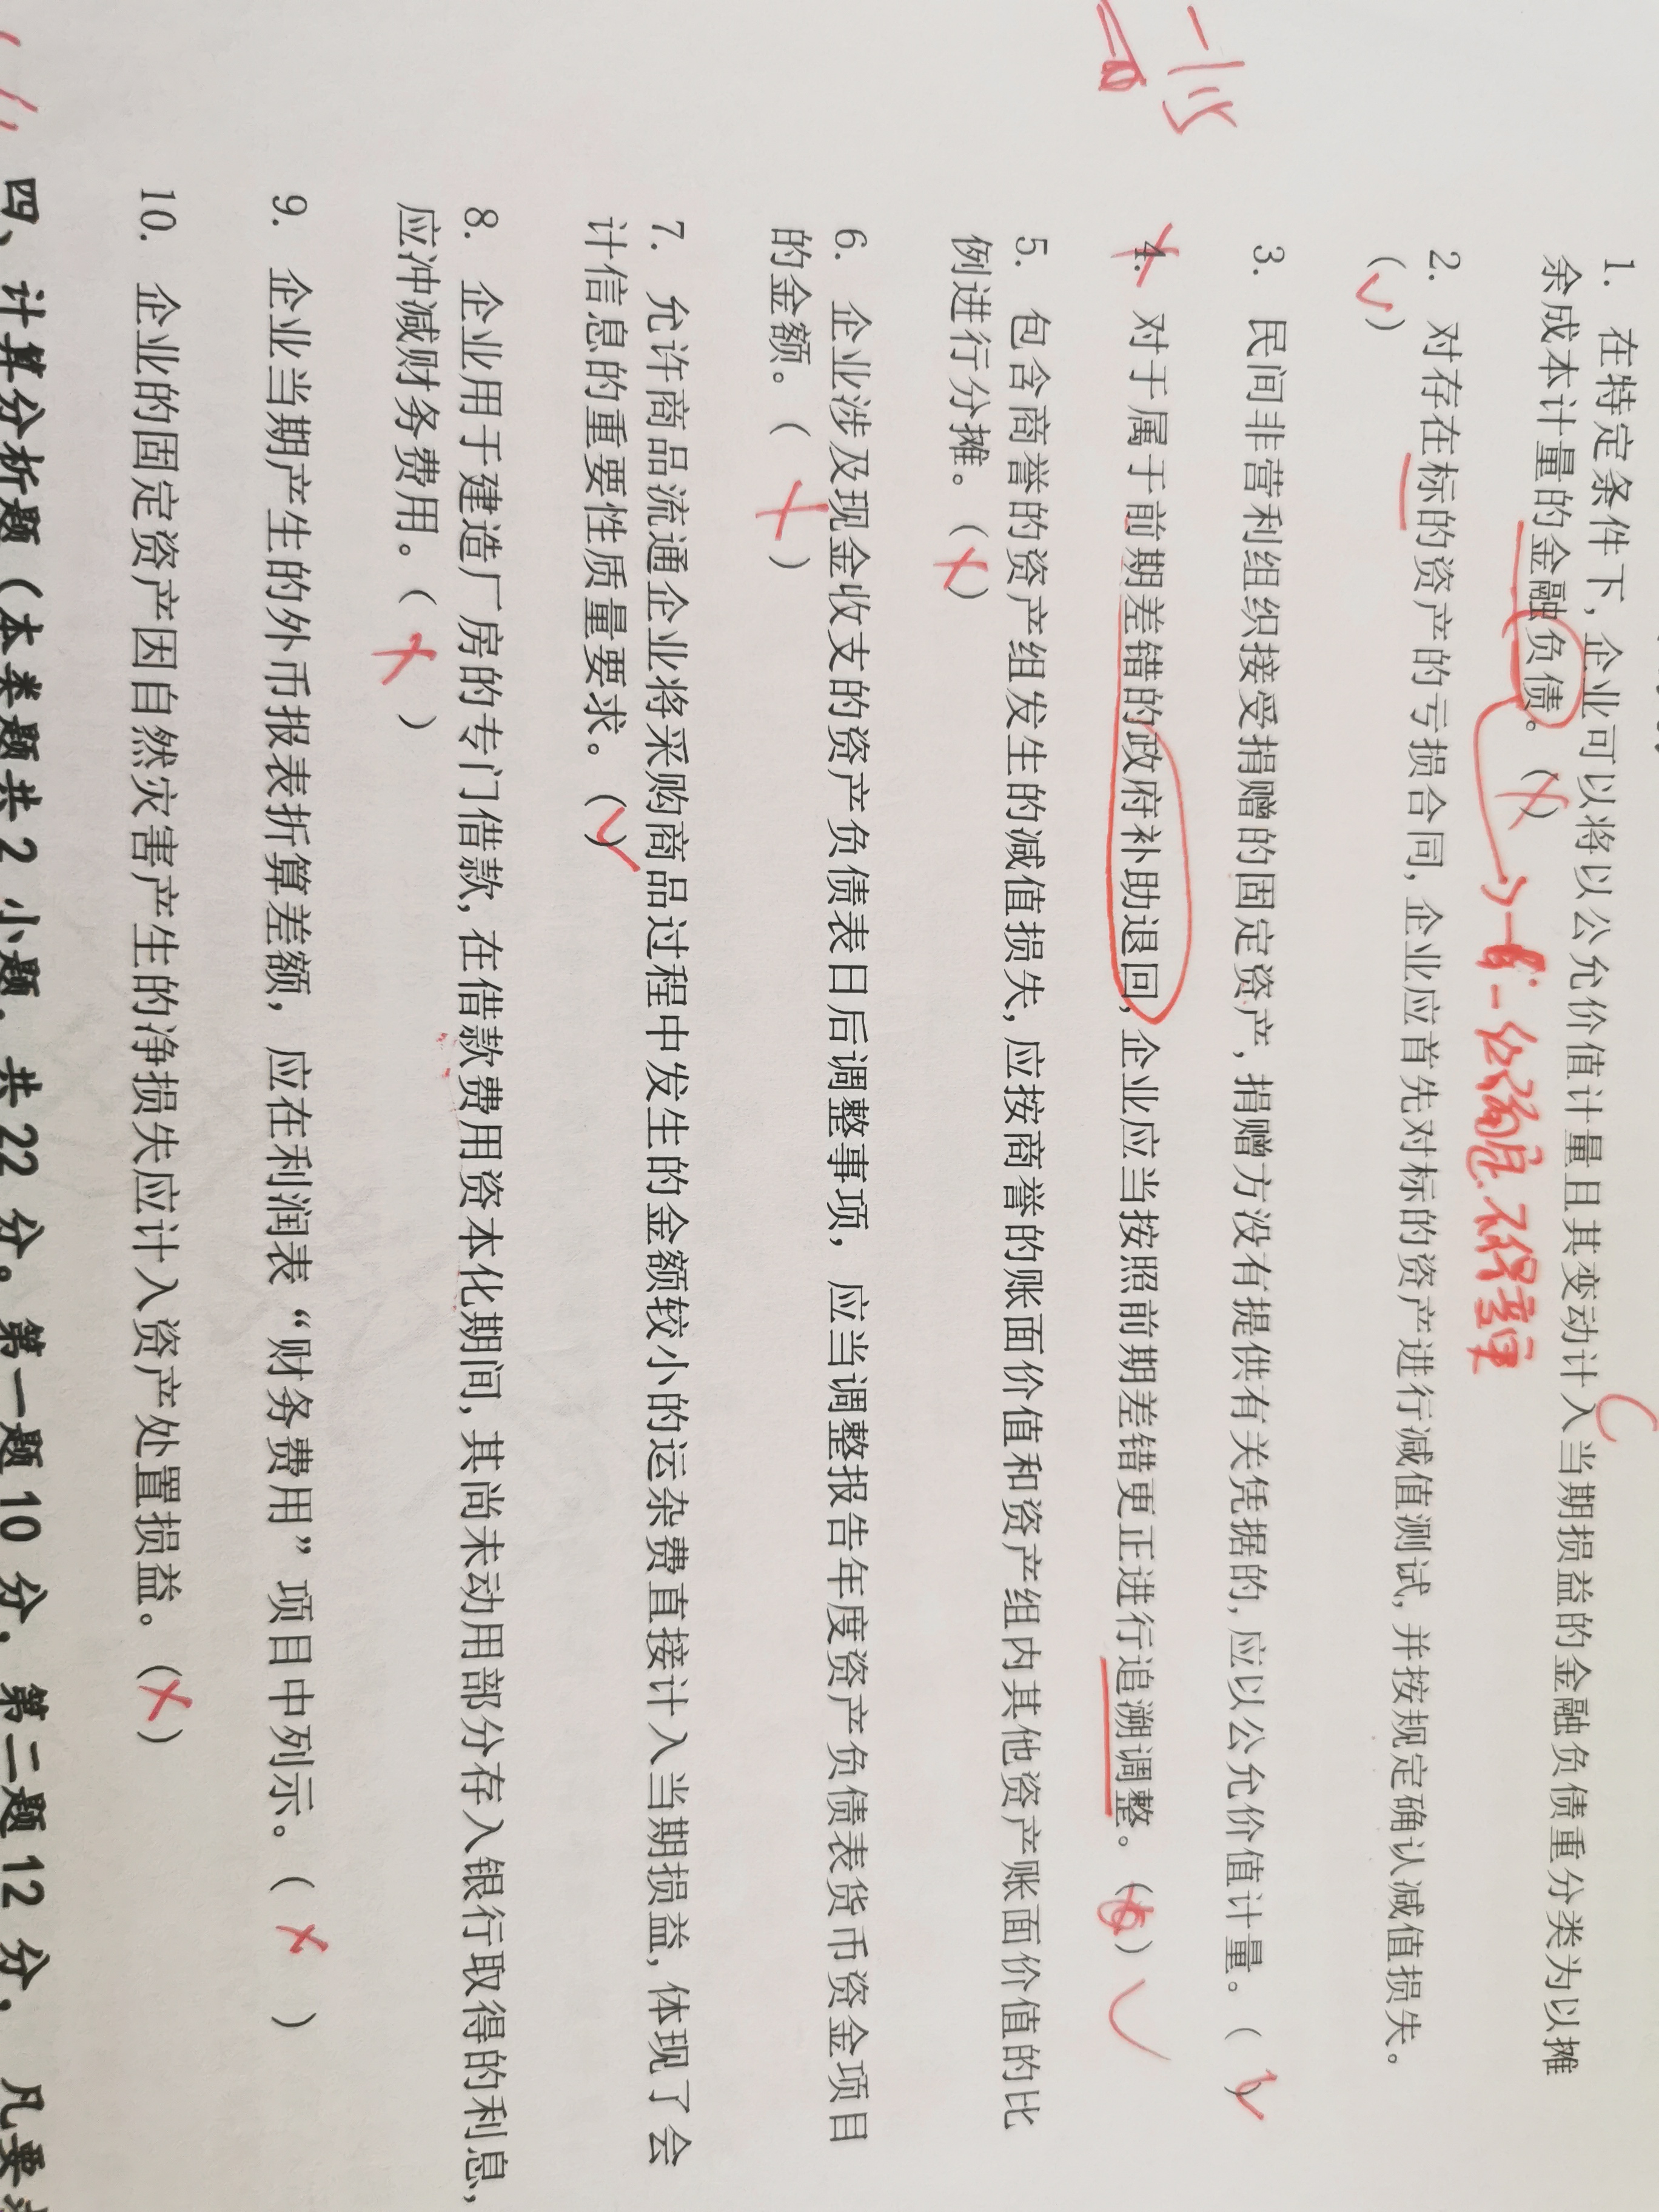 1. 在特定条件下，企业可以将以公允价值计量且其变动计入当期损益的金融负债重分类为以摊
余成本计量的金融负债。（×）
一经确定，不得变更
2. 对存在标的资产的亏损合同，企业应首先对标的资产进行减值测试，并按规定确认减值损失。
（√）
3. 民间非营利组织接受捐赠的固定资产，捐赠方没有提供有关凭据的，应以公允价值计量。（√）
4. 对于属于前期差错的政府补助退回，企业应当按照前期差错更正进行追溯调整。（ ）√
5. 包含商誉的资产组发生的减值损失，应按商誉的账面价值和资产组内其他资产账面价值的比
例进行分摊。（×）
6. 企业涉及现金收支的资产负债表日后调整事项，应当调整报告年度资产负债表货币资金项目
的金额。（×）
7. 允许商品流通企业将采购商品过程中发生的金额较小的运杂费直接计入当期损益，体现了会
计信息的重要性质量要求。（√）
8. 企业用于建造厂房的专门借款，在借款费用资本化期间，其尚未动用部分存入银行取得的利息，
应冲减财务费用。（×）
9. 企业当期产生的外币报表折算差额，应在利润表“财务费用”项目中列示。（×）
10. 企业的固定资产因自然灾害产生的净损失应计入资产处置损益。（×）
四、计算分析题（本类题共2小题，共22分。第一题10分，第二题12分，凡要